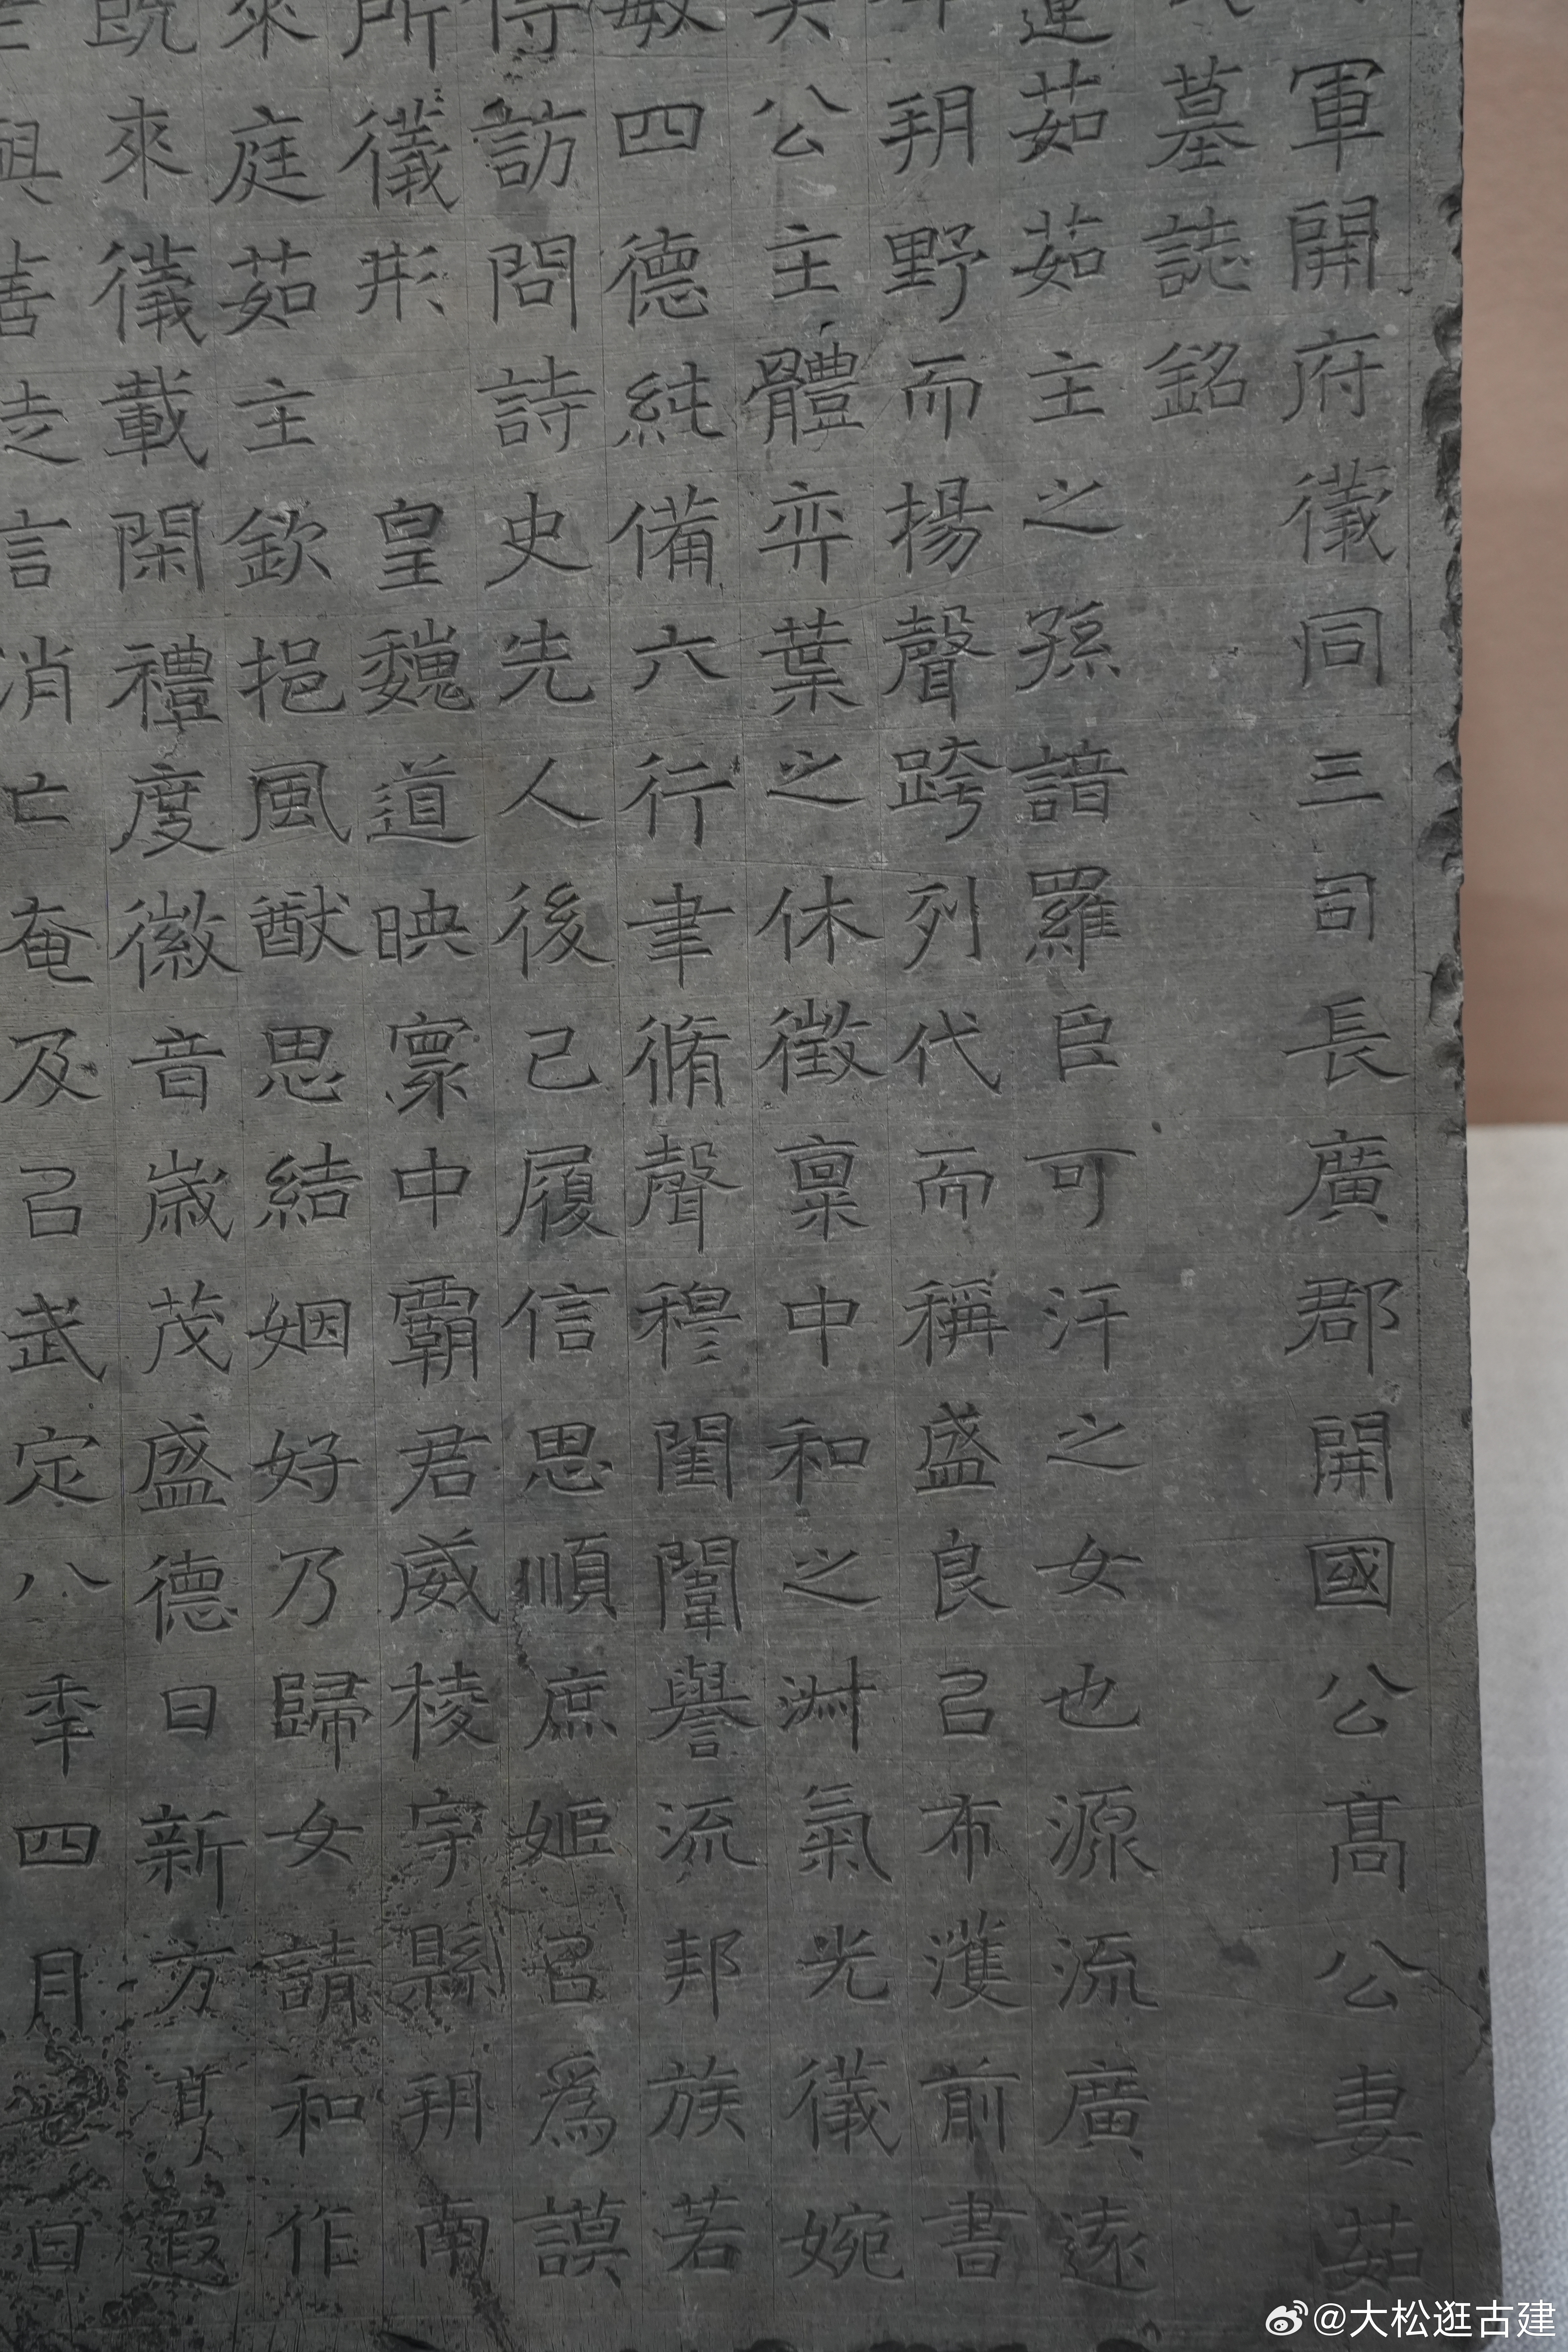 軍開府儀同三司長廣郡開國公髙公妻茹
墓誌銘
連茹茹主之孫諳羅臣可汗之女也源流廣遠
朔野而揚聲跨列代而稱盛良㠯布濩前書
矣公主體弈葉之休徵稟中和之淑氣光儀婉
敏四德純備六行聿脩聲穆閨闈譽流邦族若
訪問詩史先人後己履信思順庶姬㠯為謨
所儀形皇魏道映寰中霸君威棱宇縣朔南
來庭茹主欽挹風猷思結姻好乃歸女請和作
既來儀載閑禮度徽音歲茂盛德日新方享遐
與善徒言消亡奄及㠯武定八年四月七日
@大松逛古建